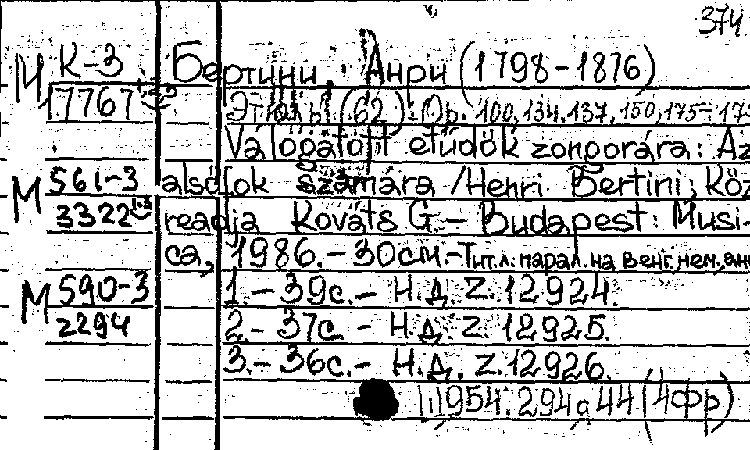 374
М К-3 Бертини, Анри (1798-1876)
17767 Этюды (62): Op. 100, 134, 137, 150, 175-
Válogatott etűdök zongorára: Az
М 561-3 alsófok számára / Henri Bertini; Köz
3322 readja Kováts G. - Budapest: Musi-
ca, 1986. - 30см. - Тит. л. парал. на венг., нем., анг
М 590-3 1. - 39с. - Н.д. Z. 12924.
2294 2. - 37с. - Н.д. Z. 12925.
3. - 36с. - Н.д. Z. 12926.
Ш954.294я44 (4фр)